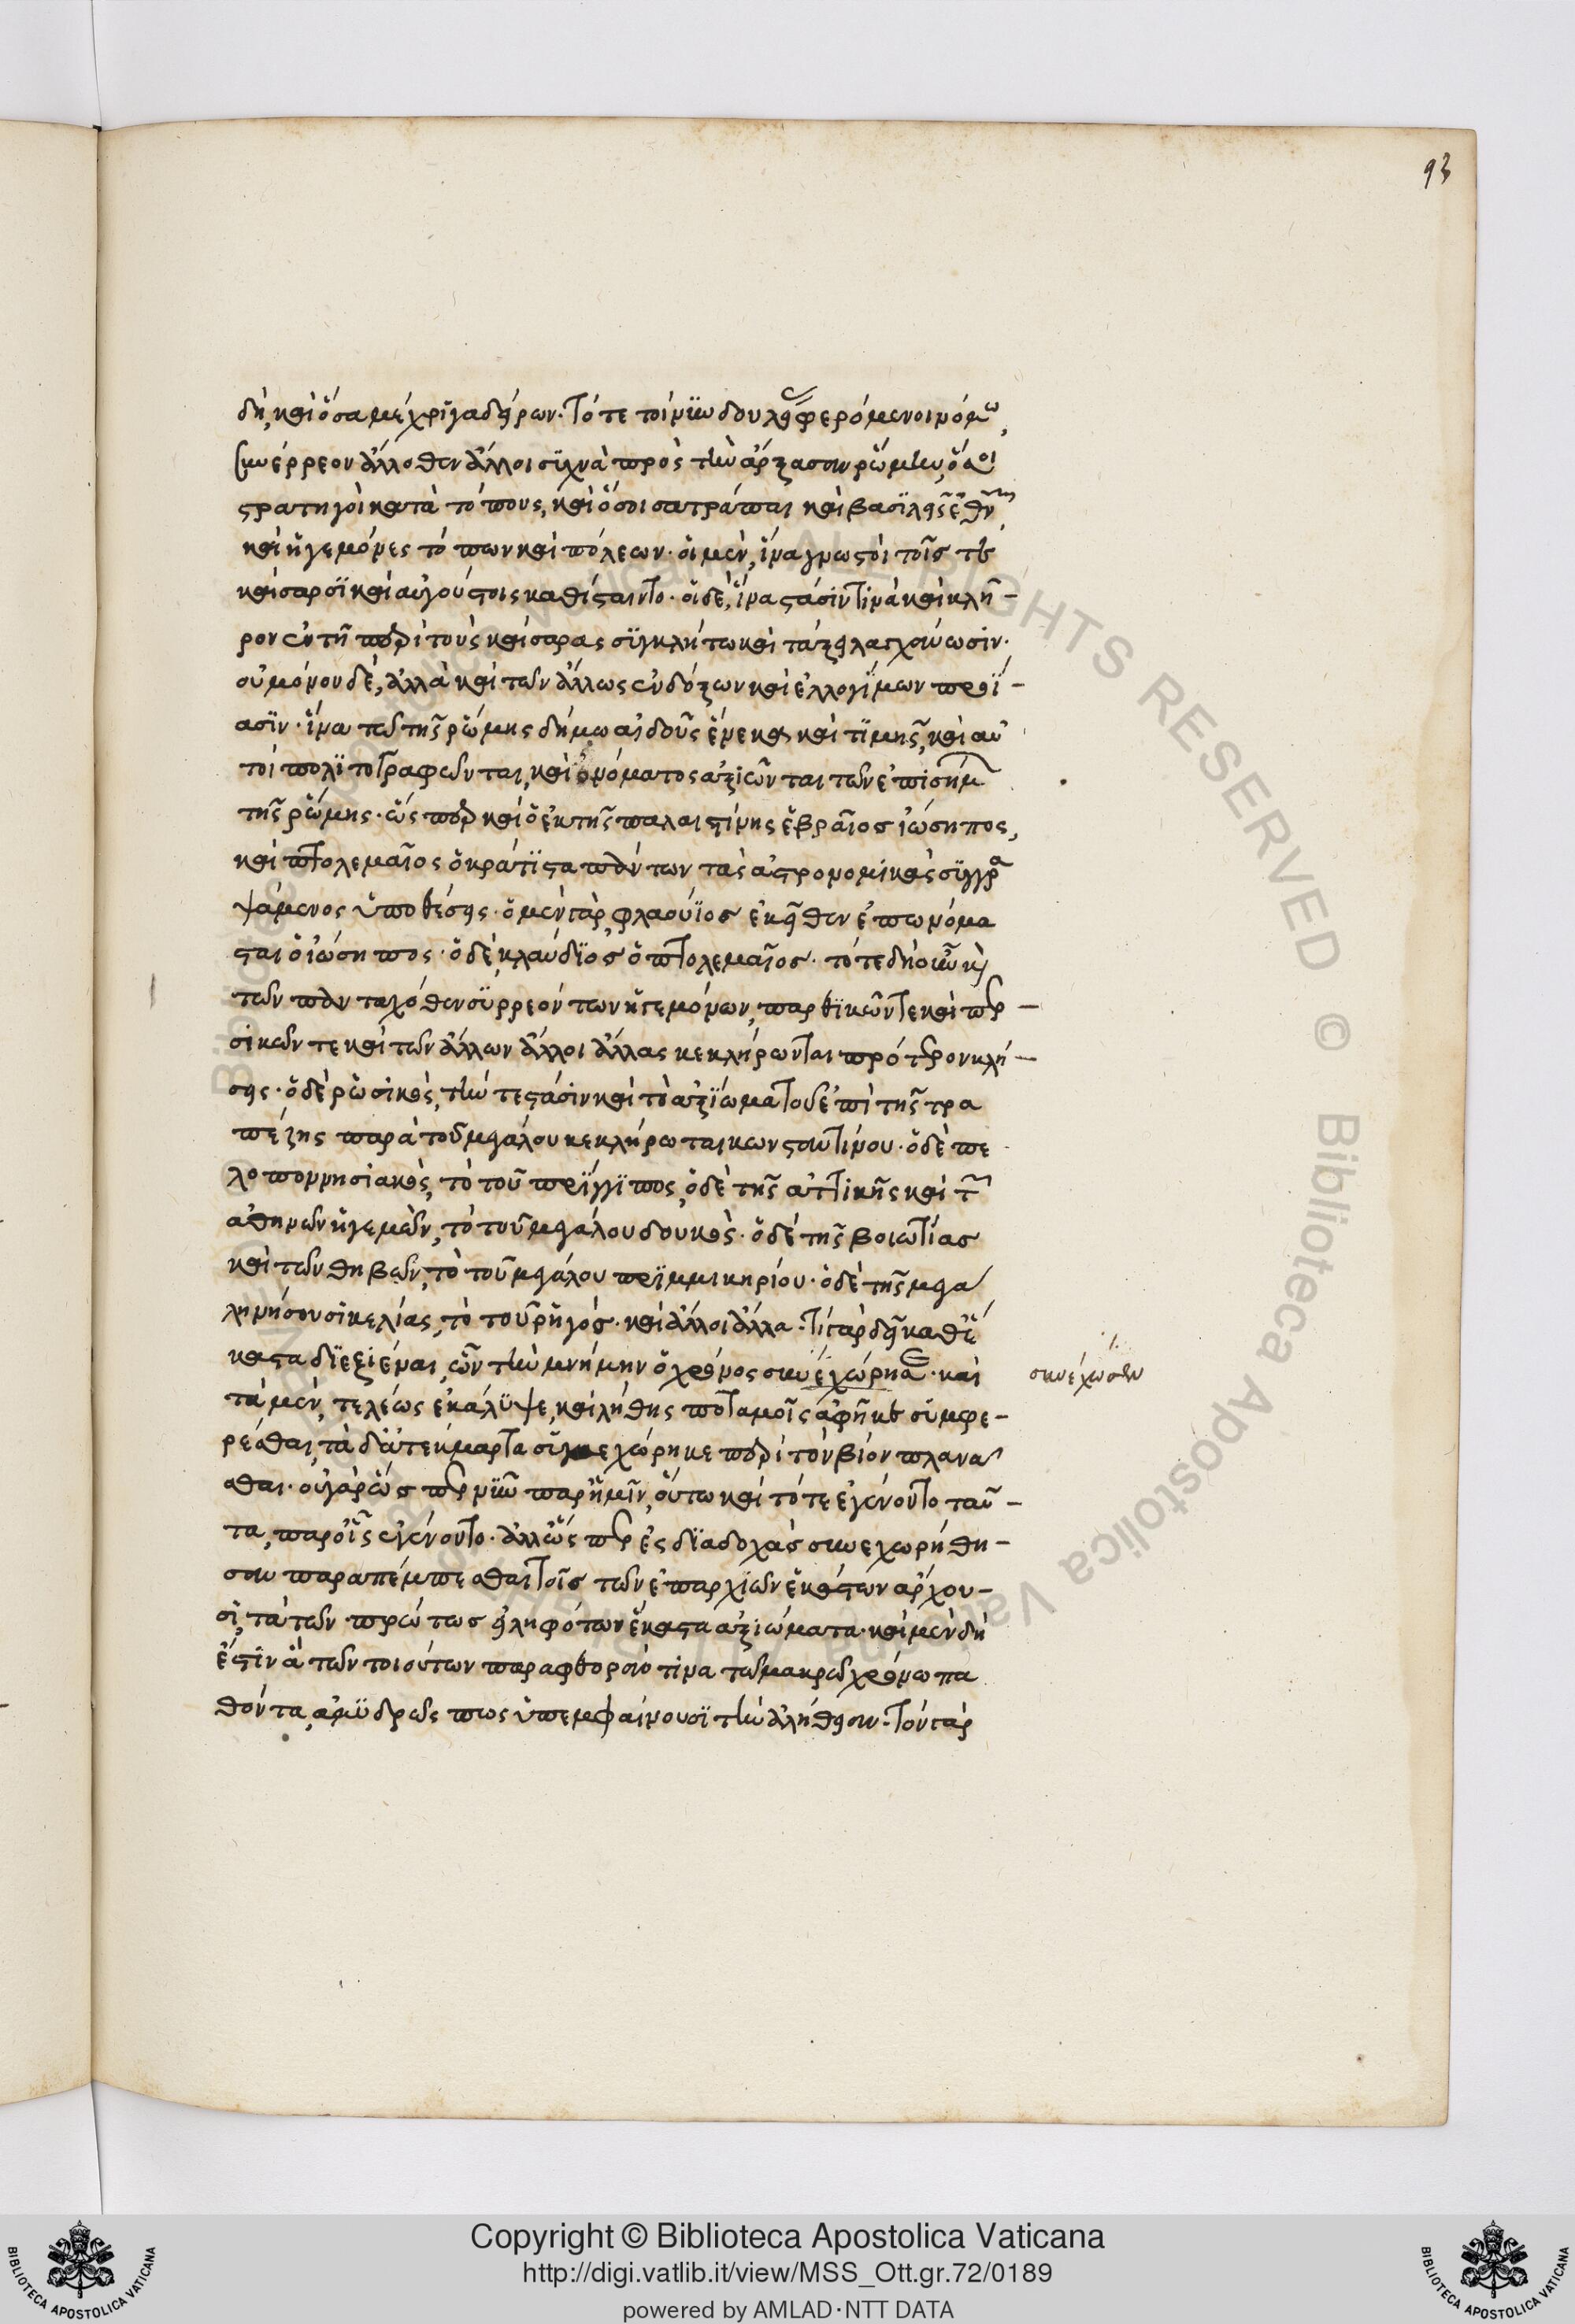 93
δὴ, καὶ ὅσα μέχρι γαδείρων. τότε τοίνυν δουλείας φερόμενοι νόμω,
συνέρρεον ἄλλοθεν ἄλλοι συχνὰ πρὸς τὴν ἄρξασαν ῥώμην, ὅσοι
στρατηγοὶ κατὰ τόπους, καὶ ὅσοι σατράπαι καὶ βασιλεῖς ἐθνῶν,
καὶ ἡγεμόνες τόπων καὶ πόλεων. οἱ μὲν, ἵνα γνωστοὶ τοῖς τε
καίσαρσι καὶ αὐγούστοις καθίσταιντο. οἱ δὲ, ἵνα στάσίν τινὰ καὶ κλῆ-
ρον ἐν τῆ περὶ τοὺς καίσαρας συγκλήτω καὶ τάξει λαγχάνωσιν.
οὐ μόνον δὲ, ἀλλὰ καὶ τῶν ἄλλως ἐνδόξων καὶ ἐλλογίμων πρoΐ-
ασιν. ἵνα τῶ τῆς ῥώμης δήμω αἰδοῦς ἕνεκα καὶ τιμῆς, καὶ αὐ
τοὶ πολιτογραφῶνται, καὶ ὀνόματος ἀξιῶνται τῶν ἐπισήμων
τῆς ῥώμης. ὥσπερ καὶ ὁ ἐκ τῆς παλαιστίνης ἑβραῖος ἰώσηπος,
καὶ πτολεμαῖος ὁ κράτιστα πάντων τὰς ἀστρονομικὰς συγγρα
ψάμενος ὑποθέσεις. ὁ μὲν γὰρ φλαούϊος ἐκεῖθεν ἐπωνόμα
σται ὁ ἰώσηπος. ὁ δὲ, κλαύδιος ὁ πτολεμαῖος. τότε δὴ οὖν καὶ
τῶν πανταχόθεν συρρεόντων ἡγεμόνων, παρθικῶν τε καὶ περ-
σικῶν τε καὶ τῶν ἄλλων ἄλλοι ἄλλας κεκλήρωνται πρότερον κλή-
σεις. ὁ δὲ ῥωσικὸς, τήν τε στάσιν καὶ τὸ ἀξίωμα τοῦ ἐπὶ τῆς τρα
πέζης παρὰ τοῦ μεγάλου κεκλήρωται κωνσταντίνου. ὁ δὲ πε
λοποννησιακὸς, τὸ τοῦ πρίγγιπος, ὁ δὲ τῆς ἀττικῆς καὶ τῶν
ἀθηνῶν ἡγεμὼν, τὸ τοῦ μεγάλου δουκὸς. ὁ δὲ τῆς βοιωτίας
καὶ τῶν θηβῶν, τὸ τοῦ μεγάλου πριμμικηρίου. ὁ δὲ τῆς μεγά
λη νήσου σικελίας, τὸ τοῦ ῥηγός. καὶ ἄλλοι ἄλλα. τί γὰρ δεῖ καθ’ ἕ
καστα διεξιέναι, ὧν τὴν μνήμην ὁ χρόνος συνεχώρησε. καὶ
συνέχωσεν
τὰ μὲν, τελέως ἐκάλυψε, καὶ λήθης ποταμοῖς ἀφῆκε συμφε-
ρέσθαι, τὰ δ’ ἀτέκμαρτα συγκεχώρηκε περὶ τὸν βίον πλανᾶ
σθαι. οὐ γὰρ ὥσπερ νῦν παρ’ ἡμῖν, οὕτω καὶ τότε ἐγένοντο ταῦ-
τα, παρ’ οἷς ἐγένοντο. ἀλλ’ ὥσπερ ἐς διαδοχὰς συνεχωρήθη-
σαν παραπέμπεσθαι τοῖς τῶν ἐπαρχιῶν ἑκάστων ἄρχου-
σι, τὰ τῶν πρώτως εἰληφότων ἕκαστα ἀξιώματα. καὶ μὲν δὴ
ἔστιν ἃ τῶν τοιούτων παραφθοράν τινα τῶ μακρῶ χρόνω πα
θόντα, ἀμυδρῶς πως ὑπεμφαίνουσι τὴν ἀλήθειαν. τὸν γὰρ
Copyright © Biblioteca Apostolica Vaticana
http://digi.vatlib.it/view/MSS_Ott.gr.72/0189
powered by AMLAD·NTT DATA